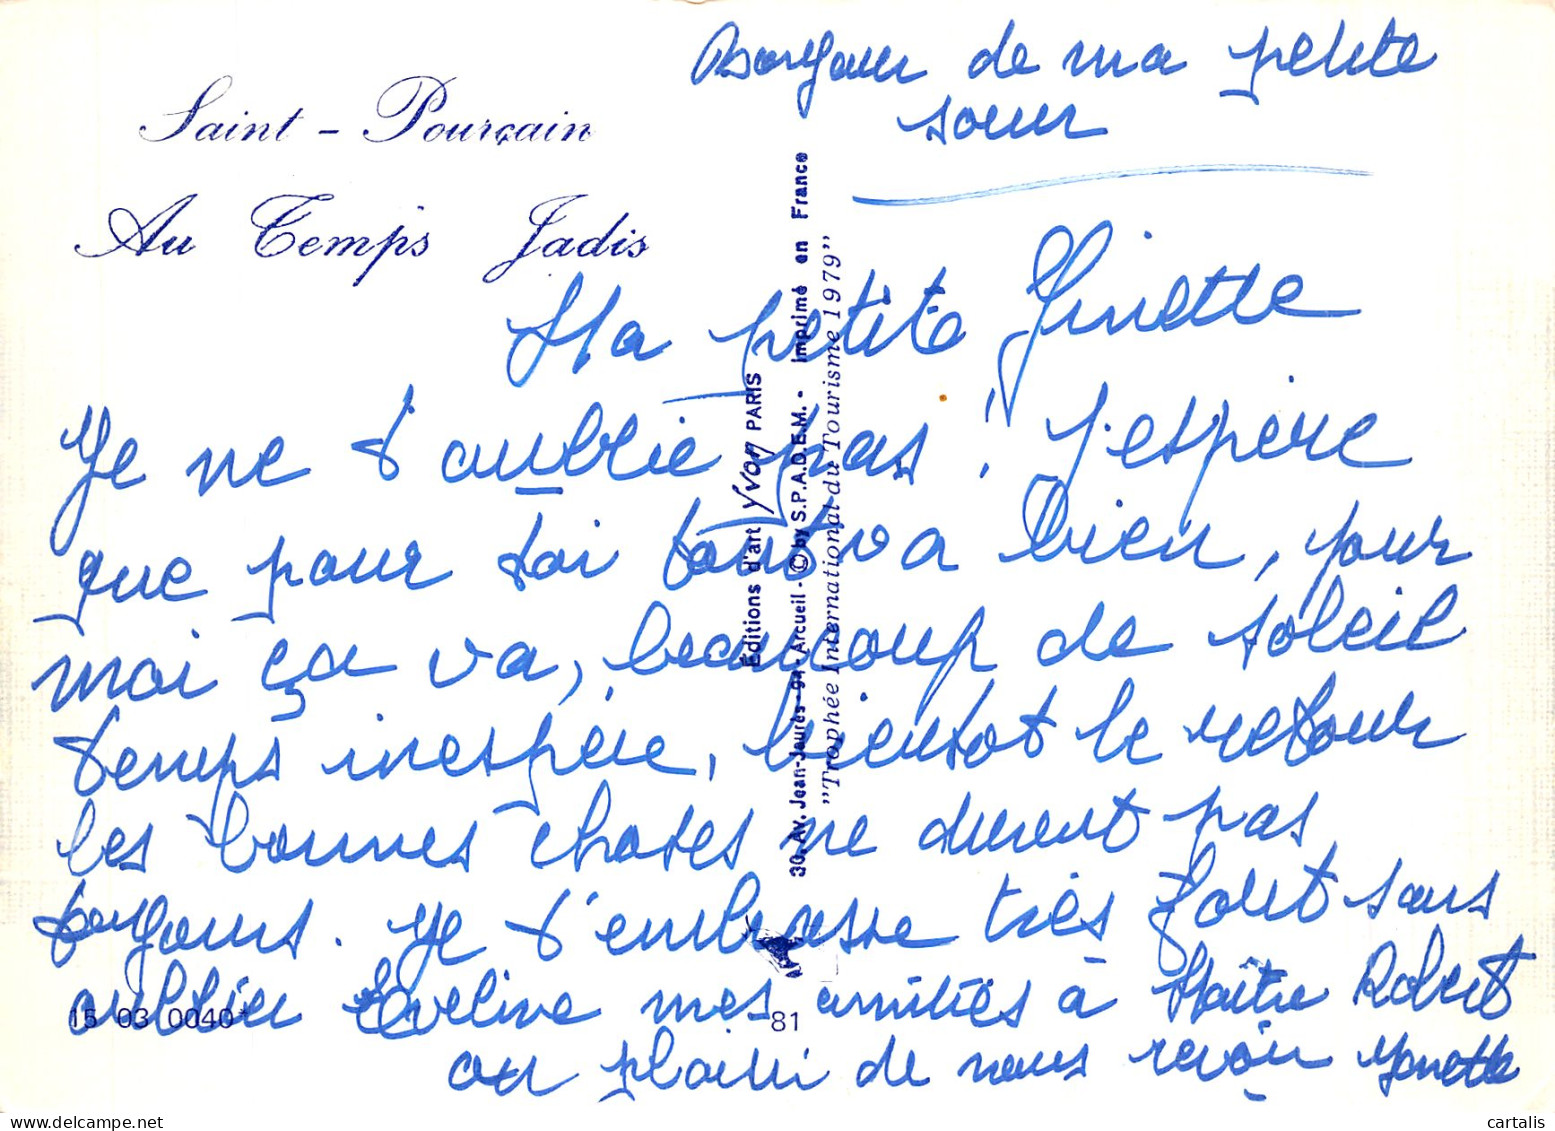 Bonjour de ma petite
soeur
Saint - Pourçain
Au Temps Jadis
Ma petite Ginette
Je ne t'oublie pas ! J'espère
que pour toi tout va bien, pour
moi ça va, beaucoup de soleil
temps inespéré, bientot le retour
les bonnes choses ne durent pas
toujours. Je t'embrasse très fort sans
oublier Eveline mes amitiés à Maître Robert
au plaisir de vous revoir Ginette
Éditions d'art Yvon PARIS
30, Av. Jean-Jaurès - 94 - Arcueil - © by S.P.A.D.E.M. - Imprimé en France
"Trophée International du Tourisme 1979"
15 03 0040*
81
cartalis